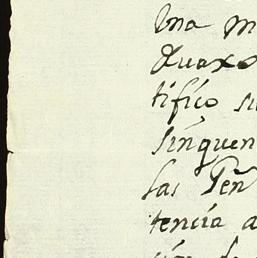 Una m
Quaxo
tifico su
sinquen
las Peñ
tencia a